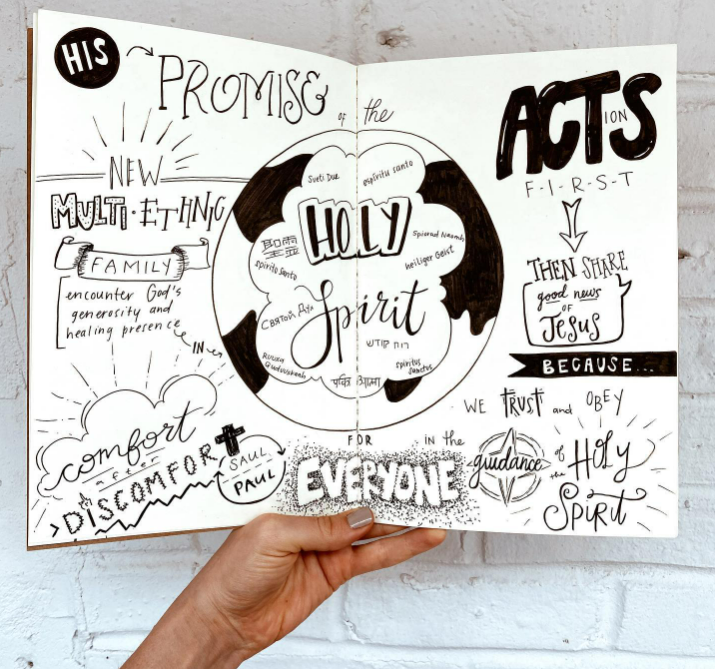 HIS
PROMISE
of the
NEW
MULTI-ETHNIC
FAMILY
encounter God's
generosity and
healing presence
IN
comfort
after
>DISCOMFORT
SAUL
PAUL
espiritu santo
HOLY
spirito santo
heiliger Geist
Spirit
Святой Дух
רוח קודש
spiritus
sanctus
FOR
EVERYONE
in the
ACTS
ION
F-I-R-S-T
THEN SHARE
good news
OF
JESUS
BECAUSE...
WE TRUST and OBEY
guidance
of
the
HOLY
SPIRIT